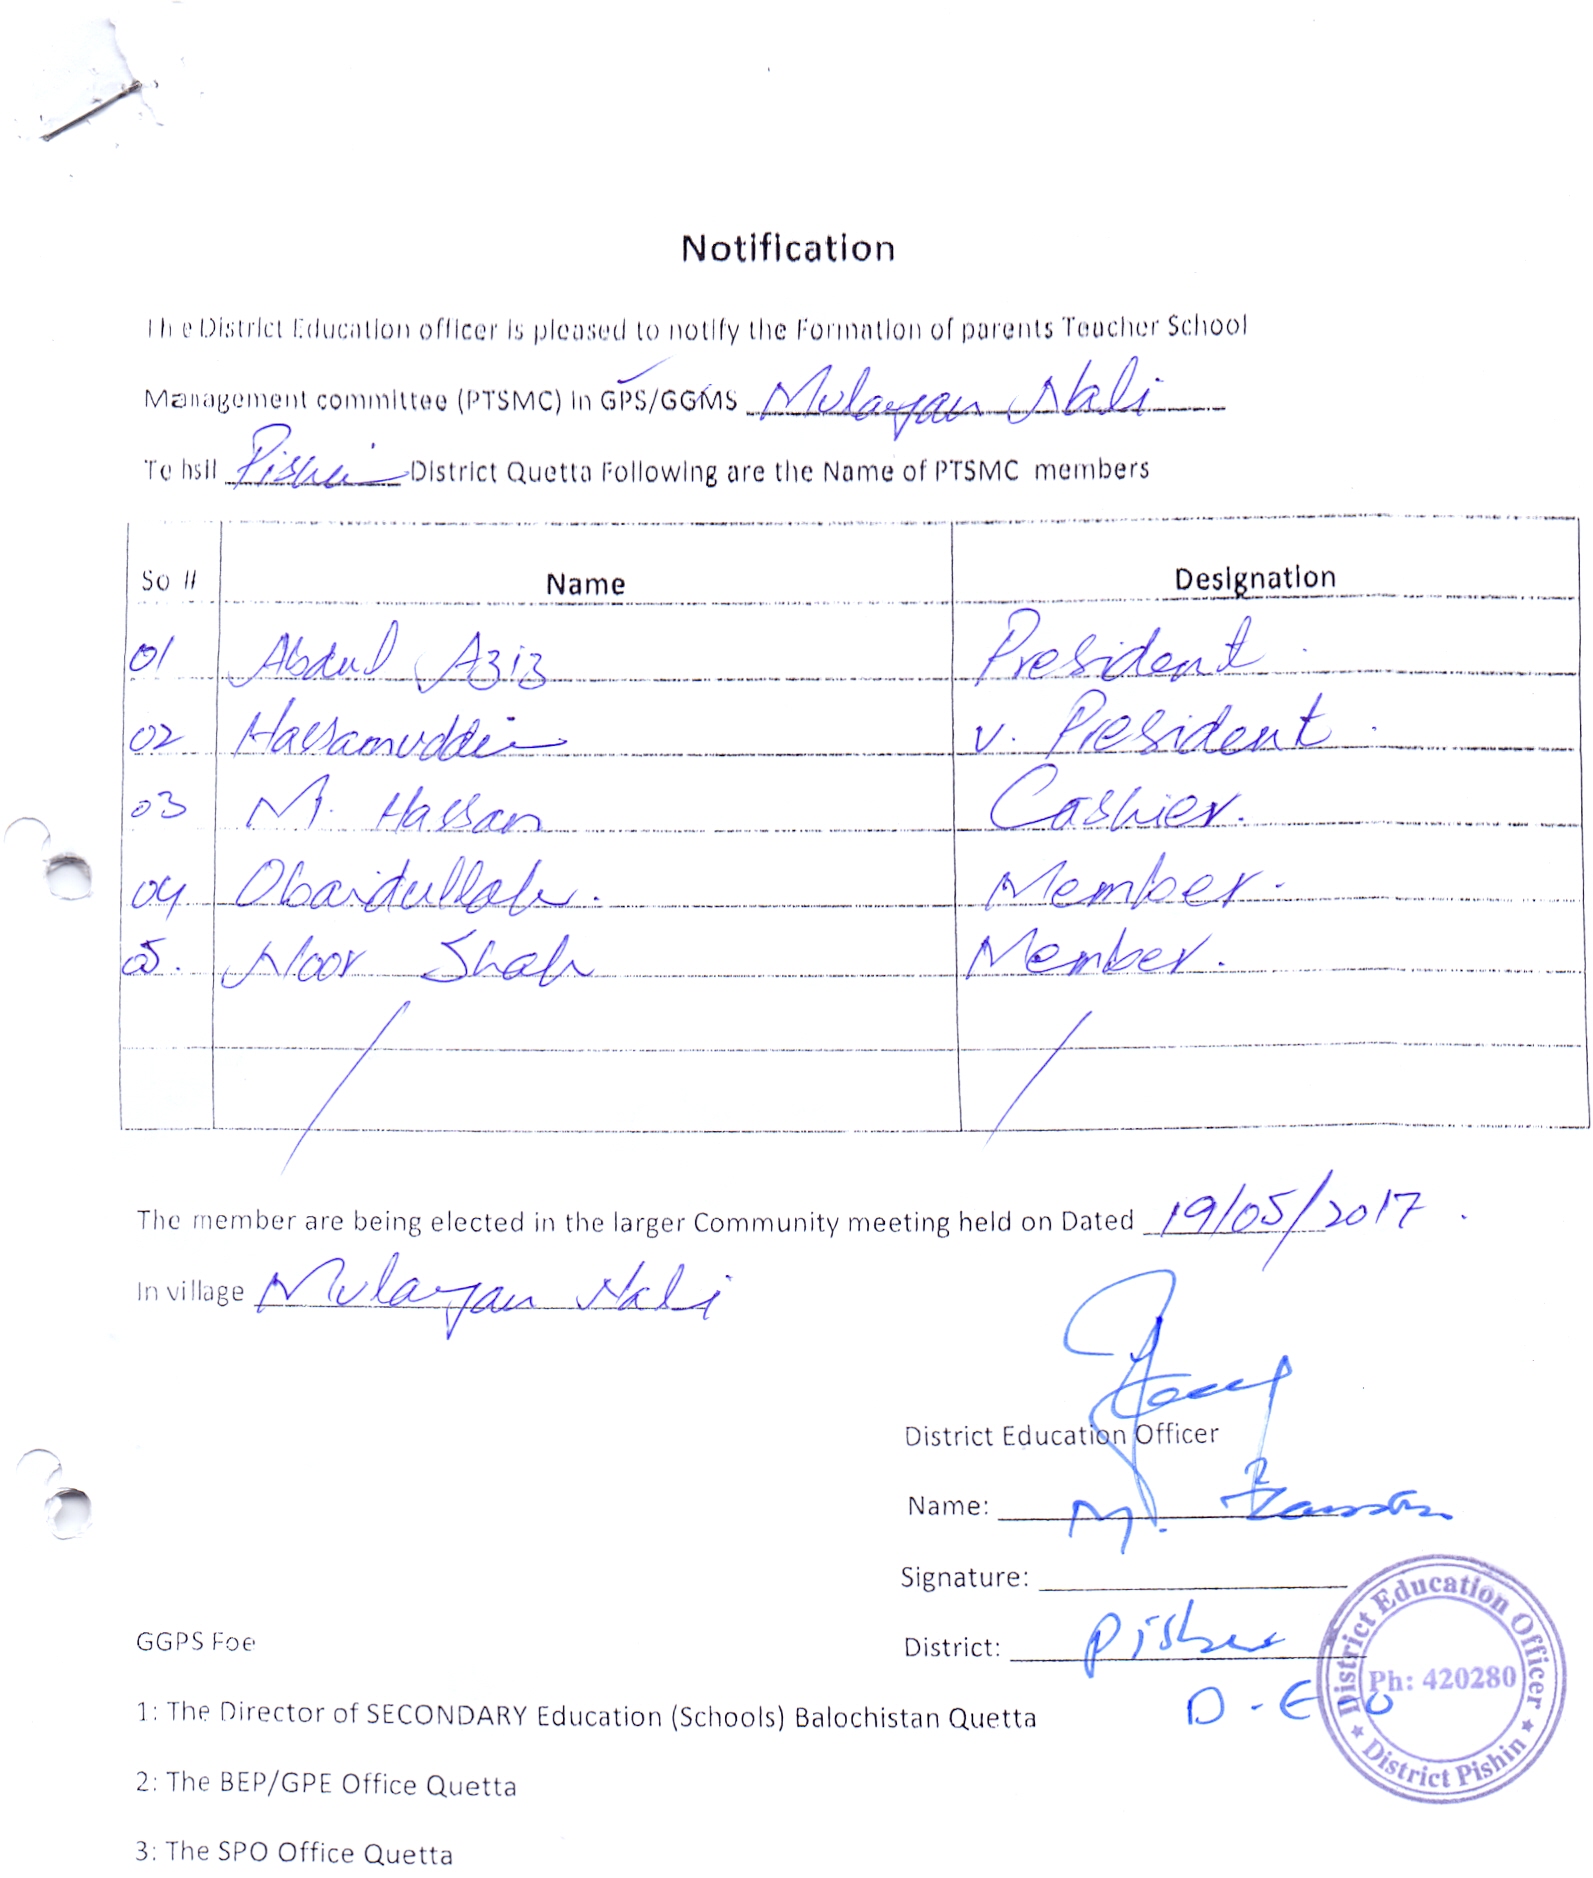 Notification
The District Education officer is pleased to notify the Formation of parents Teacher School
Management committee (PTSMC) in GPS/GGMS Mulayan Nali
Tehsil Pishin District Quetta Following are the Name of PTSMC members
So # Name Designation
01 Abdul Aziz President
02 Hassamuddin v. President
03 M. Hassan Cashier.
04 Obaidullah. Member.
05. Noor Shah Member.
The member are being elected in the larger Community meeting held on Dated 19/05/2017.
In village Mulayan Nali
District Education Officer
Name: M.
Signature:
District: Pishin
D-E-O
District Education Officer
Ph: 420280
District Pishin
GGPS Foe
1: The Director of SECONDARY Education (Schools) Balochistan Quetta
2: The BEP/GPE Office Quetta
3: The SPO Office Quetta